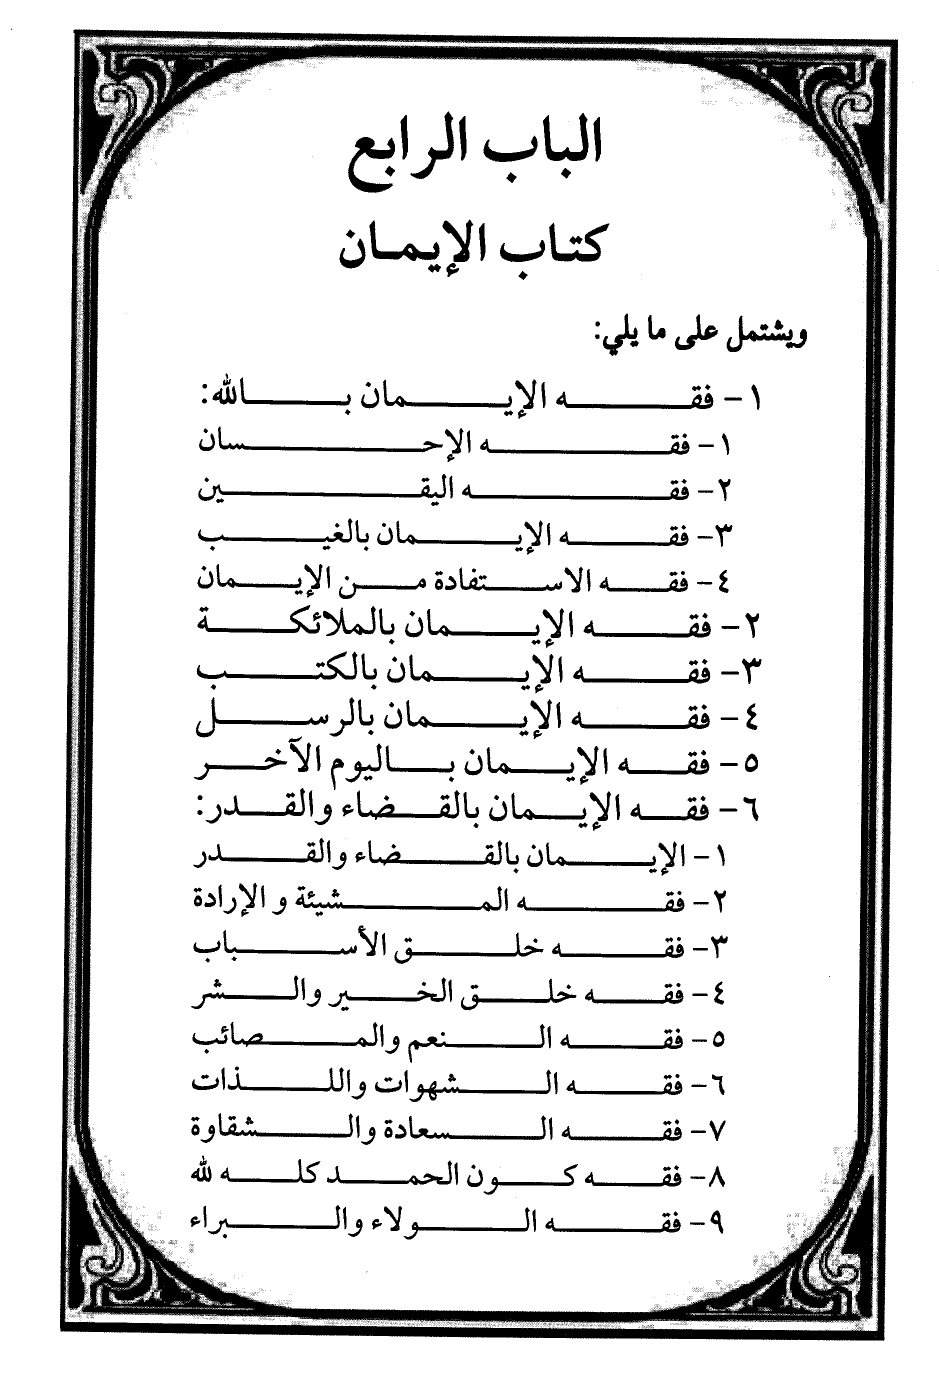 الباب الرابع
كتاب الإيمان
ويشتمل على ما يلي:
١- فقه الإيمان بالله:
١- فقه الإحسان
٢- فقه اليقين
٣- فقه الإيمان بالغيب
٤- فقه الاستفادة من الإيمان
٢- فقه الإيمان بالملائكة
٣- فقه الإيمان بالكتب
٤- فقه الإيمان بالرسل
٥- فقه الإيمان باليوم الآخر
٦- فقه الإيمان بالقضاء والقدر:
١- الإيمان بالقضاء والقدر
٢- فقه المشيئة و الإرادة
٣- فقه خلق الأسباب
٤- فقه خلق الخير والشر
٥- فقه النعم والمصائب
٦- فقه الشهوات واللذات
٧- فقه السعادة والشقاوة
٨- فقه كون الحمد كله لله
٩- فقه الولاء والبراء